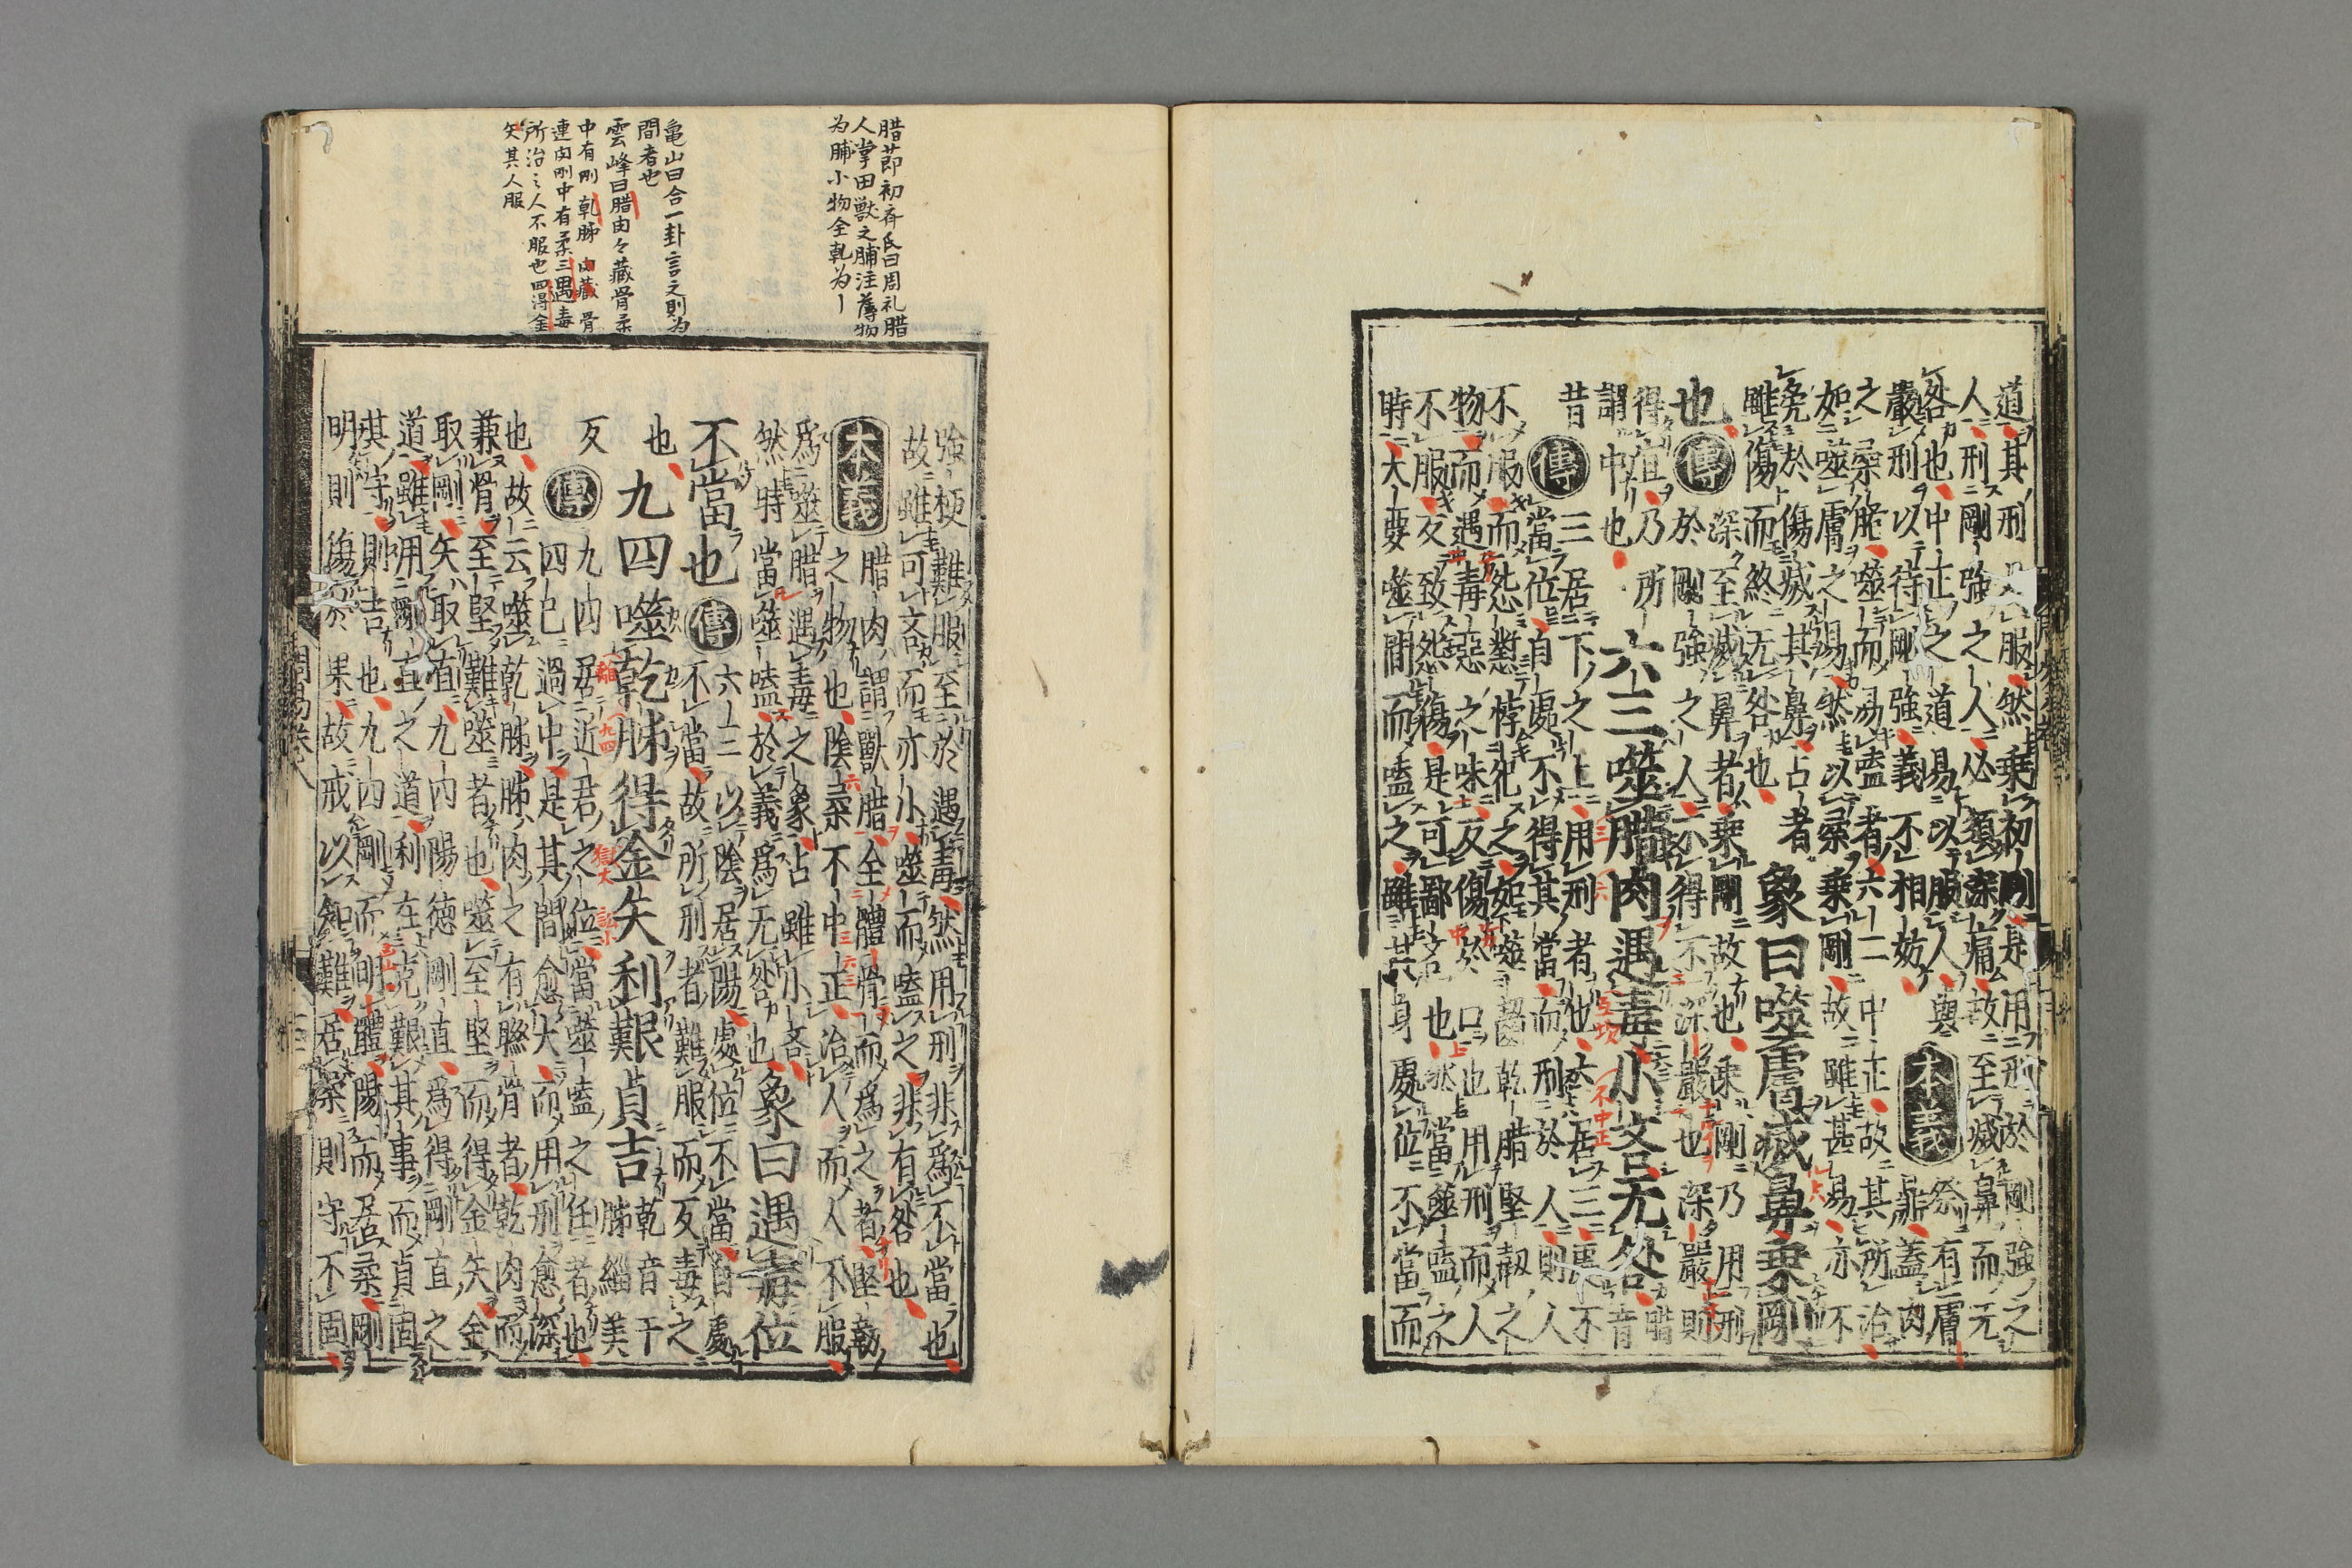 道其刑人必服然乘初剛是用刑於剛強之
人刑剛強之人必須深痛故至滅鼻而无
咎也中正之道易以服人與
嚴刑以待剛強義不相妨
本義
祭有膚
鼎蓋肉
之柔脆噬而易嗑者六二中正故其所治
如噬膚之易然以柔乘剛故雖甚易亦不
免於傷滅其鼻占者
雖傷而終无咎也
象曰噬膚滅鼻乘剛
也傳
深至滅鼻者乘剛故也乘剛乃用刑
於剛強之人不得不深嚴也深嚴則
得宜乃所
謂中也
六三噬腊肉遇毒小吝无咎
腊音
昔
傳
三居下之上用刑者也六居三處不
當位自處不得其當而刑於人則人
不服而怨懟悖犯之如噬齧乾腊堅韌之
物而遇毒惡之味反傷於口也用刑而人
不服反致怨傷是可鄙吝也然當噬嗑之
時大要噬間而嗑之雖其身處位不當而
強梗難服至於遇毒然用刑非爲不當也
故雖可吝而亦小噬而嗑之非有咎也
本義
腊肉謂獸腊全體骨而爲之者堅韌
之物也陰柔不中正治人而人不服
爲噬腊遇毒之象占雖小吝
然時當噬嗑於義爲无咎也
象曰遇毒位
不當也傳
六三以陰居陽處位不當自處
不當故所刑者難服而反毒之
也
九四噬乾胏得金矢利艱貞吉
乾音干
胏緇美
反
傳
九四居近君之位當噬嗑之任者也
四已過中是其間愈大而用刑愈深
也故云噬乾胏胏肉之有聯骨者乾肉而
兼骨至堅難噬者也噬至堅而得金矢金
取剛矢取直九四陽德剛直爲得剛直之
道雖用剛直之道利在克艱其事而貞固
其守則吉也九四剛而明體陽而居柔剛
明則傷於果故戒以知難居柔則守不固
周易卷八
腊莭初齐氏曰周礼腊
人掌田獸之脯注薄物
为脯小物全乹为
亀山曰合一卦言之則为
間者也
雲峰曰腊肉々藏骨柔
中有刚乹胏肉藏骨
連肉刚中有柔三遇毒
所治之人不服也四得金
矢其人服